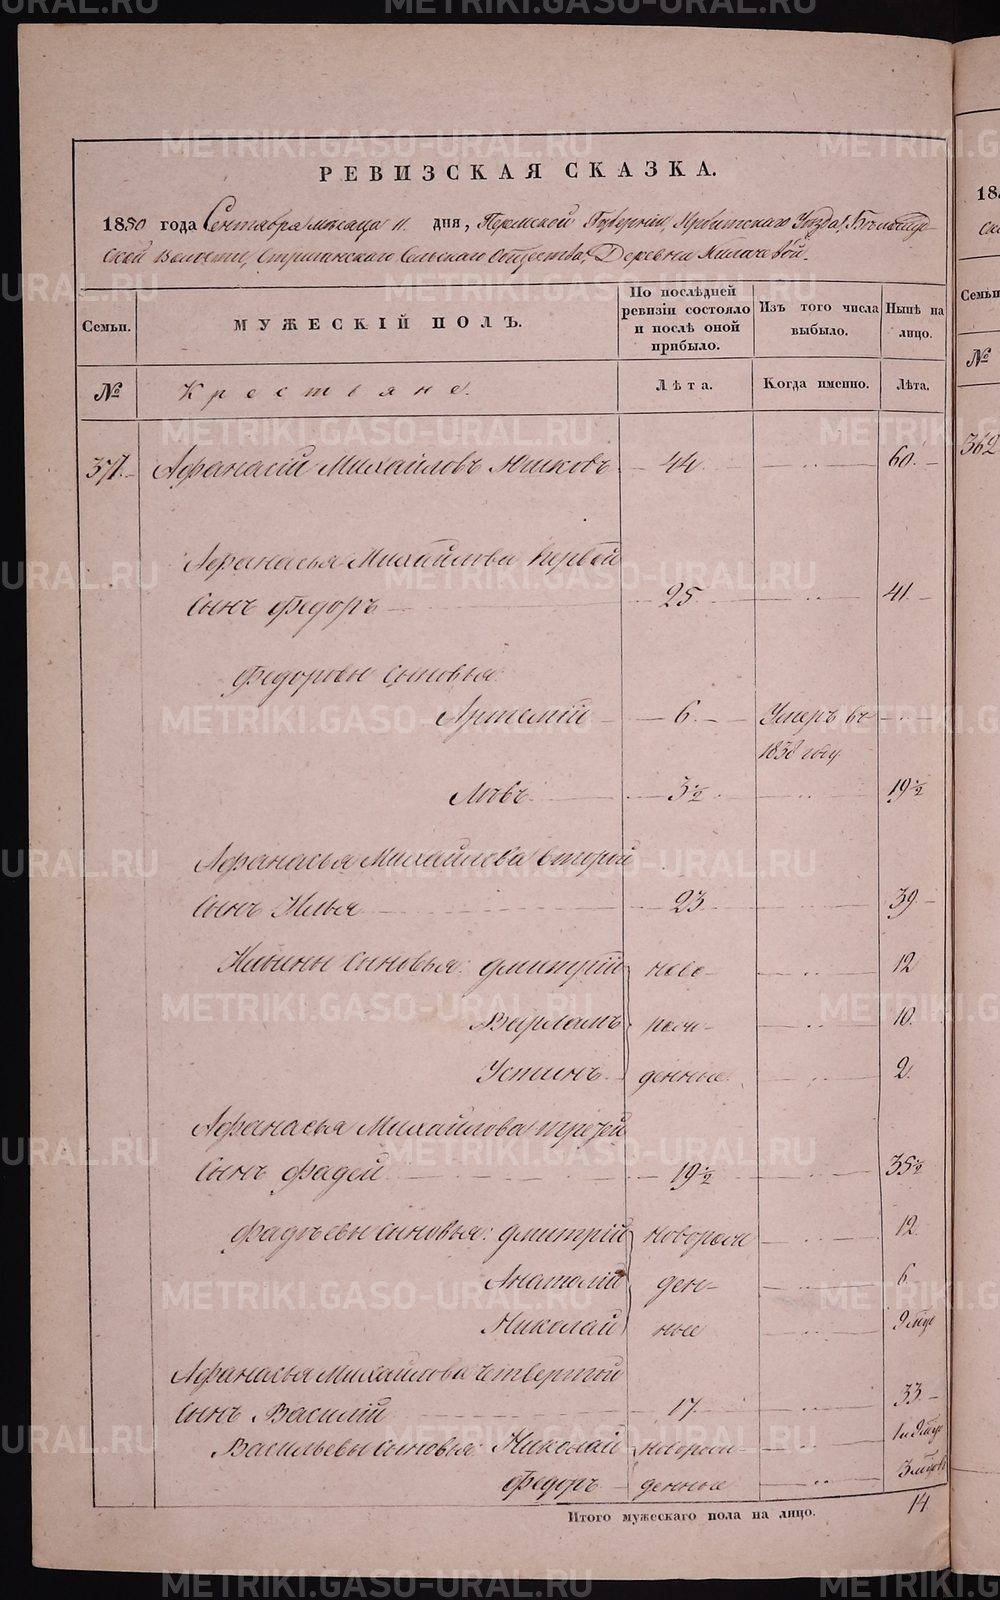 РЕВИЗСКАЯ СКАЗКА.
1850 года Сентября месяца 11 дня, Пермской Губернии, Ирбитскаго Уезда,
ской Волости, Стриганскаго Сельскаго Общества, Деревни
Семьи. МУЖЕСКІЙ ПОЛЪ. По послѣдней ревизіи состояло и послѣ оной прибыло. Изъ того числа выбыло. Нынѣ на лицо.
№ Крестьяне. Лѣта. Когда именно. Лѣта.
371. Афанасій Михайловъ Юшковъ 44. 60.
Афанасья Михайлова первой
Сынъ Федоръ 25 41.
Федоровы сыновья:
Артемій 6. Умеръ въ
1838 году
Левъ 3½ 19½
Афанасья Михайлова второй
Сынъ Илья 23 39
Ильины сыновья: Дмитрій ново- 12
Варламъ рож- 10.
Устинъ денные. 2.
Афанасья Михайлова третей
Сынъ Фадей 19½ 35½
Фадѣевы сыновья: Дмитрій новорож 12.
Анатолій ден- 6
Николай ные 9 мцъ
Афанасья Михайлова четвертой
Сынъ Василій 17. 33.
Васильевы сыновья: Николай новорож
Федоръ денные 3 мцовъ
Итого мужескаго пола на лицо. 14
18
Семьи
№
362
METRIKI.GASO-URAL.RU